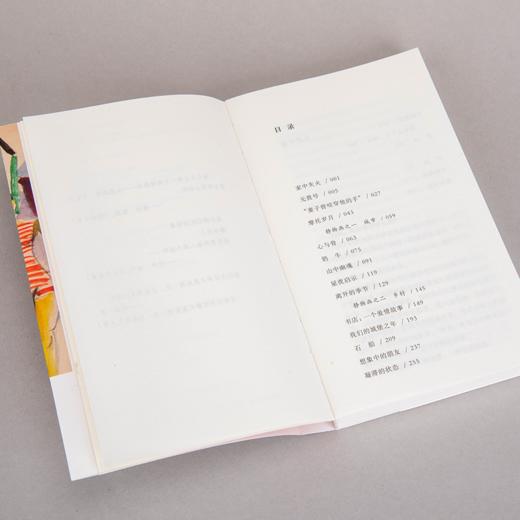 目 录
家中失火 / 001
无畏号 / 005
“妻子曾咬穿他的手” / 027
摩托岁月 / 045
静物画之一 城市 / 059
心与骨 / 063
奶 牛 / 075
山中幽魂 / 091
星夜启示 / 119
离开的季节 / 129
静物画之二 乡村 / 145
书店：一个爱情故事 / 149
我们的城堡之年 / 193
石 胎 / 209
想象中的朋友 / 237
凝滞的状态 / 255